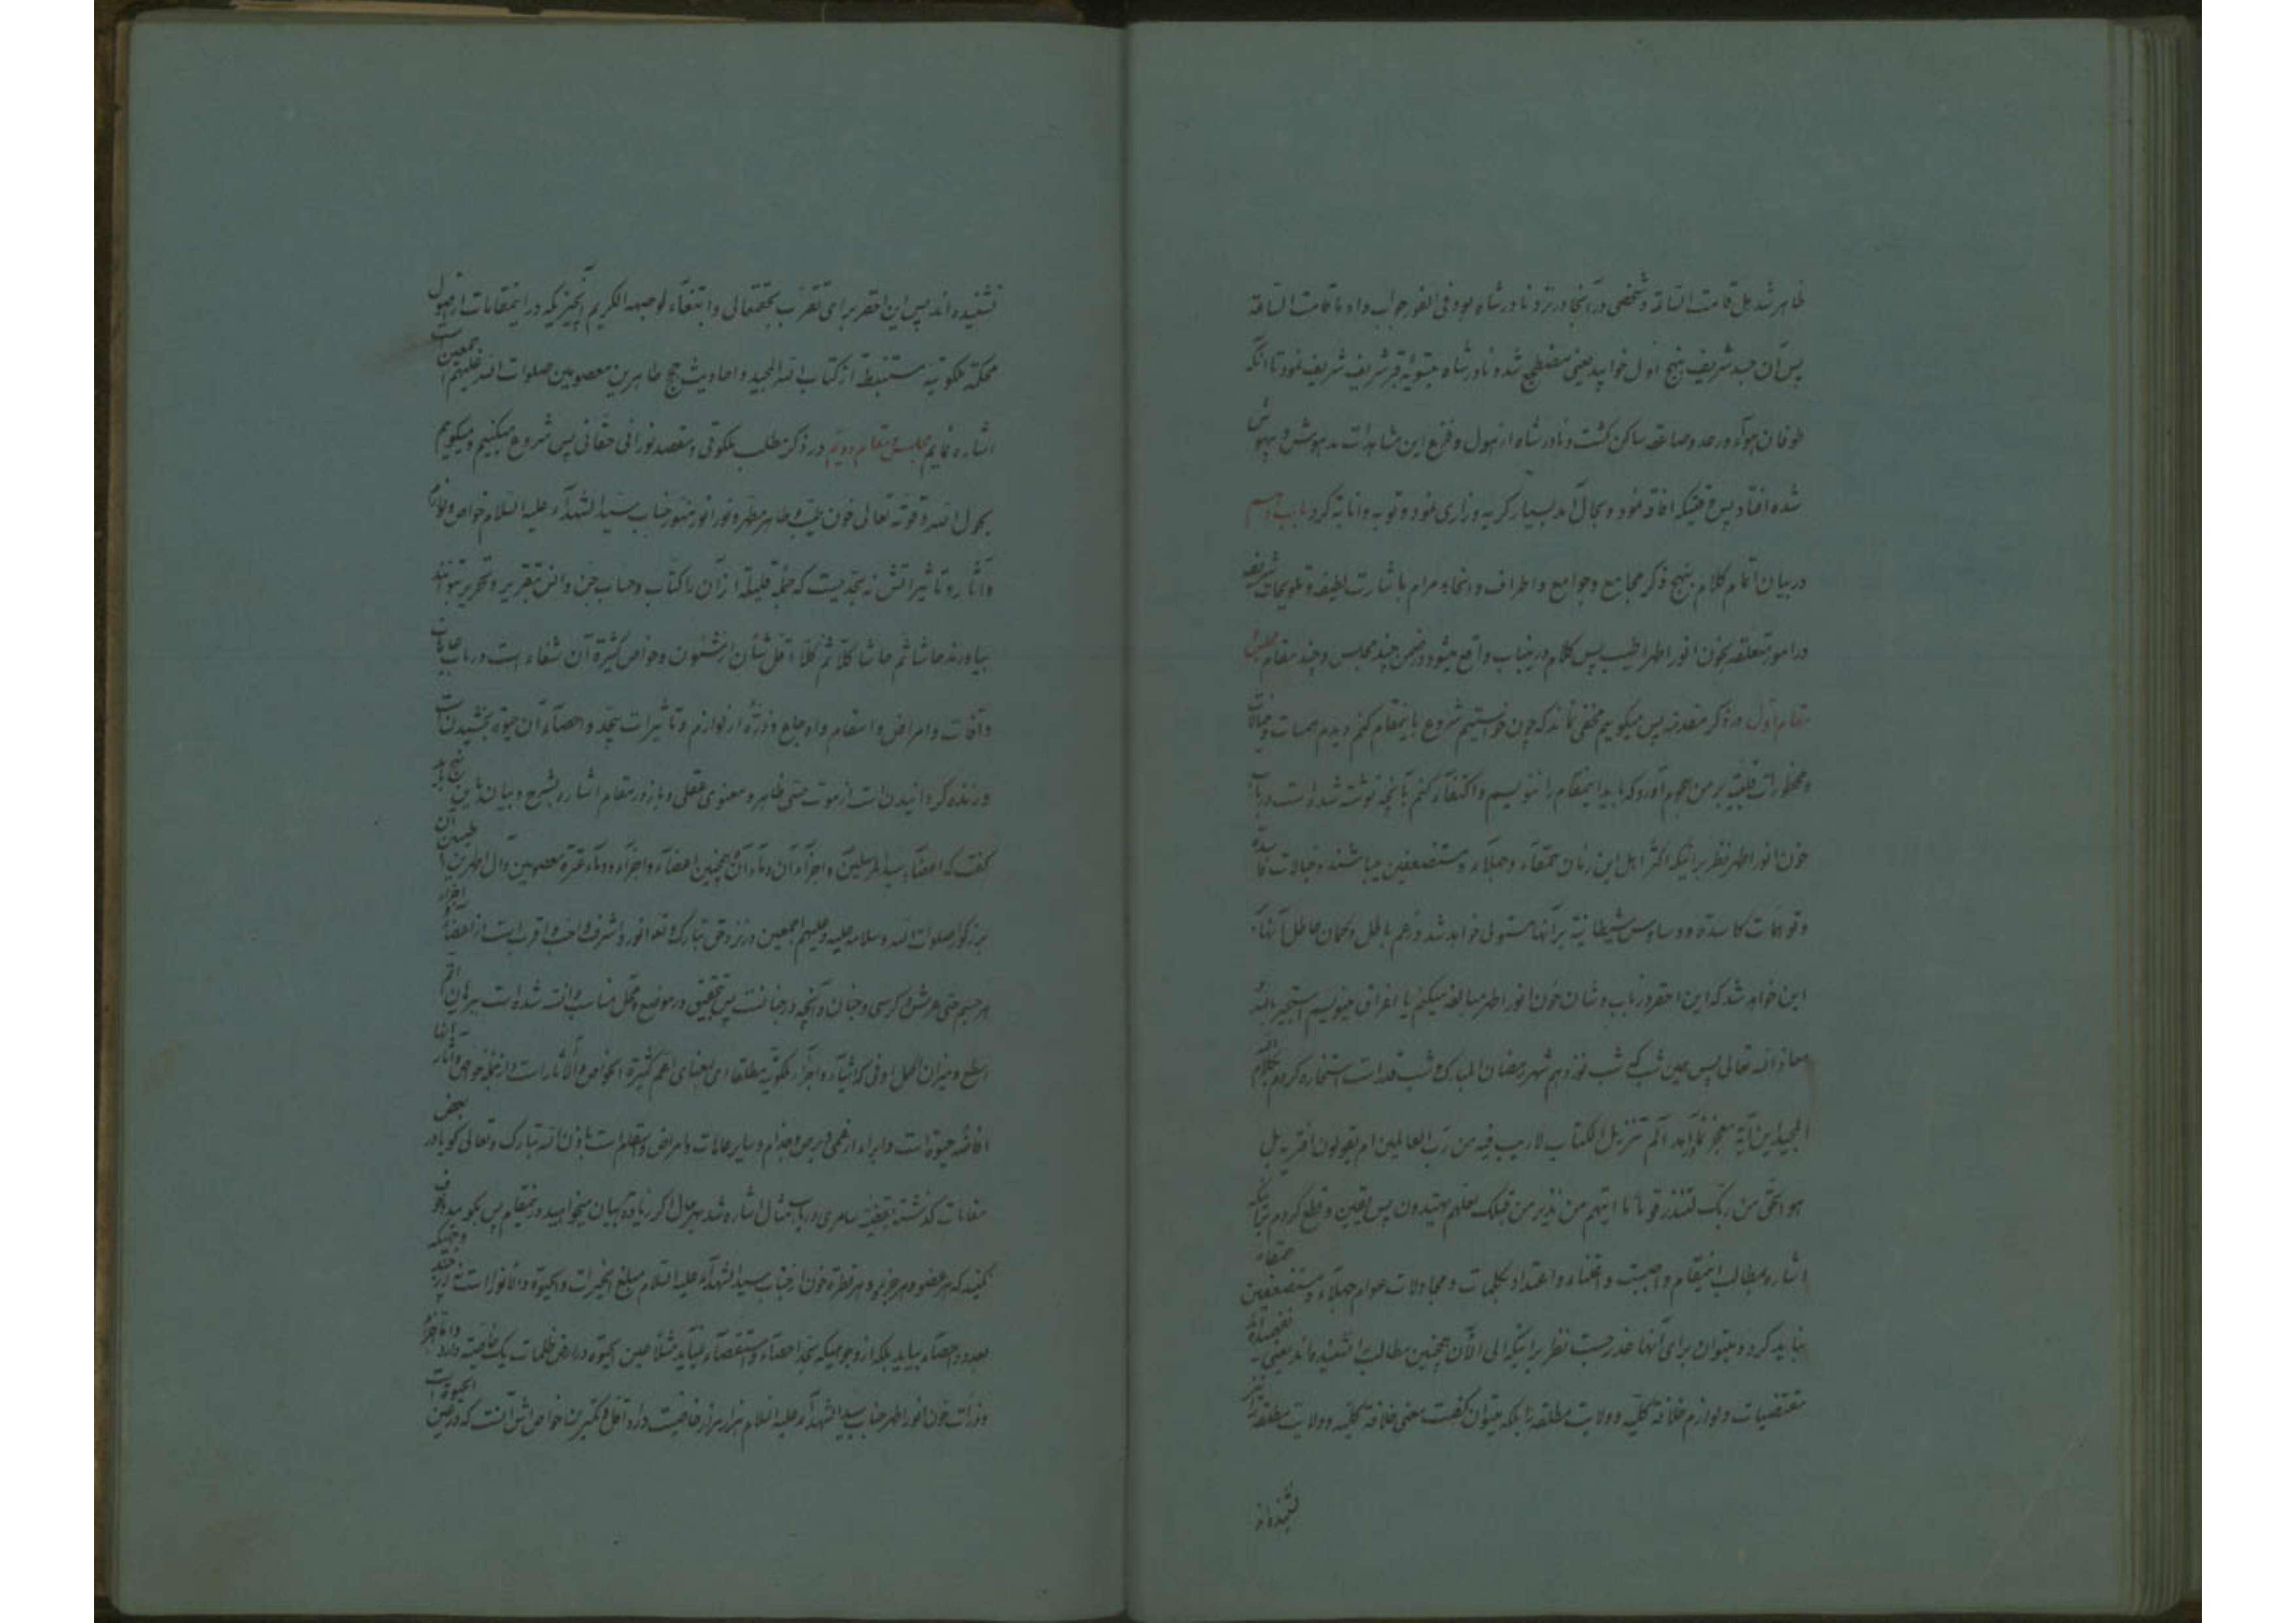 ظاهر شد بل قامت الساعة و شخصی در آنجا در نزد نادر شاه بود فی الفور جواب داد ما قامت الساعة
پس آن جسد شریف بنهج اول خوابید یعنی مضطجع شد و نادر شاه تسویه قبر شریف شریف نمود تا آنکه
طوفان هوآء و رعد و صاعقه ساکن گشت و نادر شاه از هول و فزع این مشاهدات مدهوش و بیهوش
شده افتاد پس وقتیکه افاقه نمود و بحال آمد بسیار کریه و زاری نمود و توبه و انابه کرد باب
در بیان اتمام کلام بنهج ذکر مجامع و جوامع و اطراف و انحاء مرام باشارت لطیفه و تلویحات شریفه
در امور متعلقه بخون انور اطهر اطیب پس کلام درینباب واقع میشود در ضمن چند مجلس و چند مقام مجلس
مقام اول در ذکر مقدمه پس میکوییم مخفی نماند که چون خواستیم شروع باینمقام کنم دیدم و خیالات
و خطورات قلبیه بر من هجوم آورد که باید اینمقام را ننویسم و اکتفآء کنم بآنچه نوشته شده است در باب
خون انور اطهر نظر براینکه اکثر اهل این زمان حمقآء و جهلآء و مستضعفین میباشند و خیالات فاسده
و توهمات کاسده و وساوس شیطانیة برآنها مستولی خواهد شد و زعم باطل و کمان عاطل آنهآء
این خواهد شد که این احقر در باب و شان خون انور اطهر مبالغه میکنم یا اغراق مینویسم استجیر بالله
معاذ الله تعالی پس همین شب که شب نوزدهم شهر رمضان المبارک و شب قدر است استخاره کردم بکلام الله
المجید این آیة معجز نما آمد الم تنزیل الکتاب لا ریب فیه من رب العالمین ام یقولون افتریه بل
هو الحق من ربک لتنذر قوما ما اتیهم من نذیر من قبلک لعلهم یهتدون پس یقین و قطع کردم باینکه
اشاره بمطالب اینمقام واجبست و اعتناء و اعتداد بکلمات و مجادلات عوام جهلآء و حمقاء و مستضعفین
نباید کرد و میتوان برای آنها عذر جست نظر براینکه الی الآن همچنین مطالب را نشنیده اند یعنی نفهمیده اند
مقتضیات و لوازم خلافة کلیه و ولایت مطلقه را بلکه میتوان کفت معنی خلافة کلیه و ولایت مطلقه را نیز
نشنیده اند
نشنیده اند پس این احقر برای تقرب بحقتعالی و ابتغآء لوجهه الکریم آنچیزیکه در اینمقامات از اصول
محکمه ملکوتیه مستنبطه از کتاب الله المجید و احادیث حجج طاهرین معصومین صلوات الله علیهم اجمعین است
اشاره نمایم مجلس و مقام دویم در ذکر مطلب ملکوتی و مقصد نورانی حقانی پس شروع میکنیم و میکوییم
بحول الله و قوته تعالی خون طیب و طاهر مطهر و نور انور منور جناب سید الشهدآء علیه السلام خواص و لوازم
و آثار و تاثیراتش نه بحدیست که جمله قلیله از آن را کتاب و حساب جن و انس بتقریر و تحریر بتوانند
بیاورند حاشا ثم حاشا کلا ثم کلا اقل شأن از شئون و خواص کثیره آن شفاء است در باب عاهات
و آفات و امراض و اسقام و اوجاع و ذره از لوازم و تأثیرات بیحد و احصآء آن حیوة بخشیدن است
و زنده کردانیدن است از موت حسی ظاهر و معنوی عقلی و باز در مقام اشاره بشرح و بیان باین نهج باید
کفت که اعضآء سید المرسلین و اجزآء آن و دمآء آن و همچنین اعضآء و اجزآء و دمآء عترة معصومین و آل اطهرین طیبین آن
بزرکوار صلوات الله و سلامه علیه و علیهم اجمعین در نزد حق تبارک و تعالی انور و اشرف و احب و اقرب است از اعضاء و اجزاء
هر جسم حتی عرش و کرسی و جنان و آنچه در جنانست پس بتحقیق در موضع و محل مناسب دانسته شده است ببرهان اتم
اسطع و میزان اکمل اوفی که اشیآء و اجزآء ملکوتیه مطلقا ای بمعنای اعم کثیرة الخواص و الآثار است و از جمله خواص و آثار آنها
افاضه حیوة است و ابراء از عمی و برص و جذام و سایر عاهات و امراض و اسقام است باذن الله تبارک و تعالی کویا در بعض
مقامات کذشته بقصه سامری در باب امثال اشاره شد بهر حال اگر زیاده بیان میخواهید در ینمقام پس بکویید و
کنید که هر عضو و هر جزء و هر قطره خون از جناب سید الشهدآء علیه السلام مبلغ الخیرات و الحیوة و الانوار است
بعدد و احصآء بیاید بلکه از وجوهیکه بحد احصآء و استقصآء نیاید مثلا عین الحیوة در ارض ظلمات یک خاصیت دارد
و ذرات خون انور اطهر جناب سید الشهدآء علیه السلام هزار هزار خاصیت دارد اقل و کمترین خواص اش آنست که در عین الحیوة است